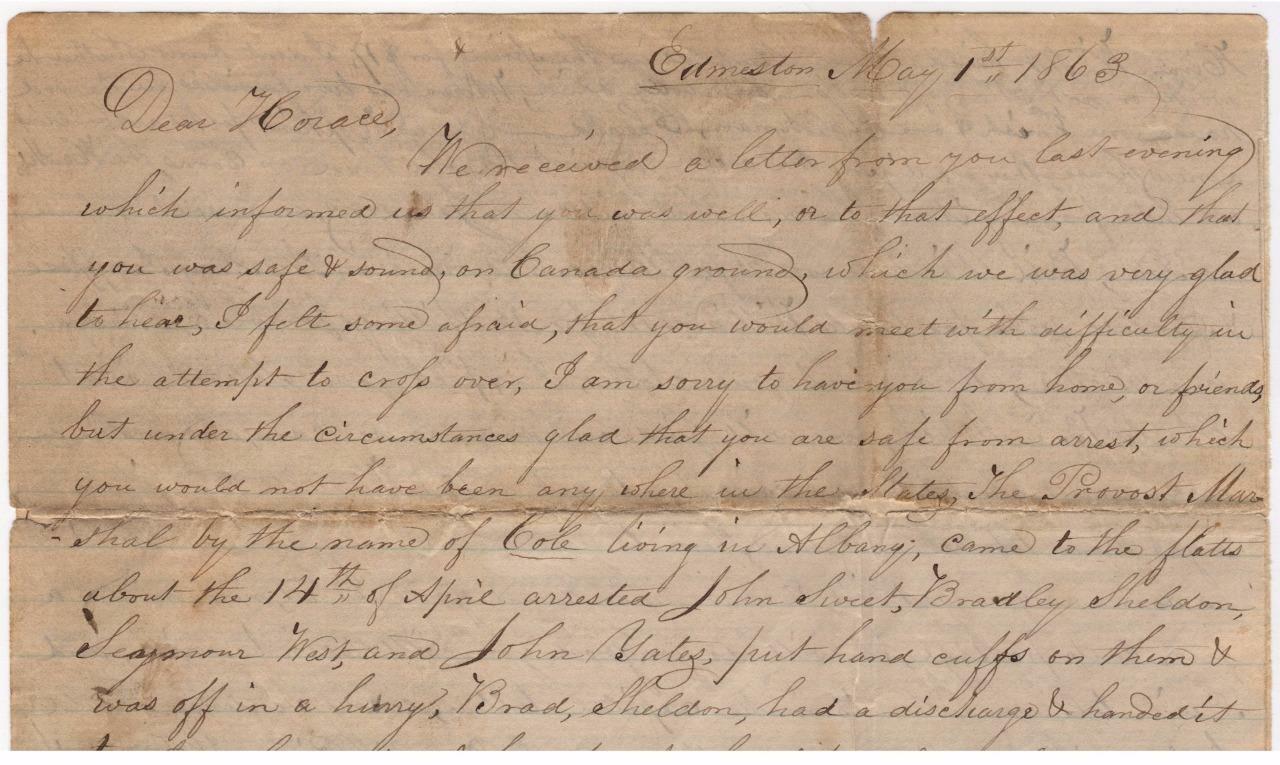 Edmeston May 1st 1863
Dear Horace,
We received a letter from you last evening
which informed us that you was well, or to that effect, and that
you was safe & sound, on Canada ground, which we was very glad
to hear, I felt some afraid, that you would meet with difficulty in
the attempt to cross over, I am sorry to have you from home, or friends,
but under the circumstances glad that you are safe from arrest, which
you would not have been any where in the States, The Provost Mar-
-shal by the name of Cole living in Albany, came to the flatts
about the 14th of April arrested John Sweet, Bradley Sheldon,
Seymour West, and John Yates, put hand cuffs on them &
was off in a hurry, Brad, Sheldon, had a discharge & handed it